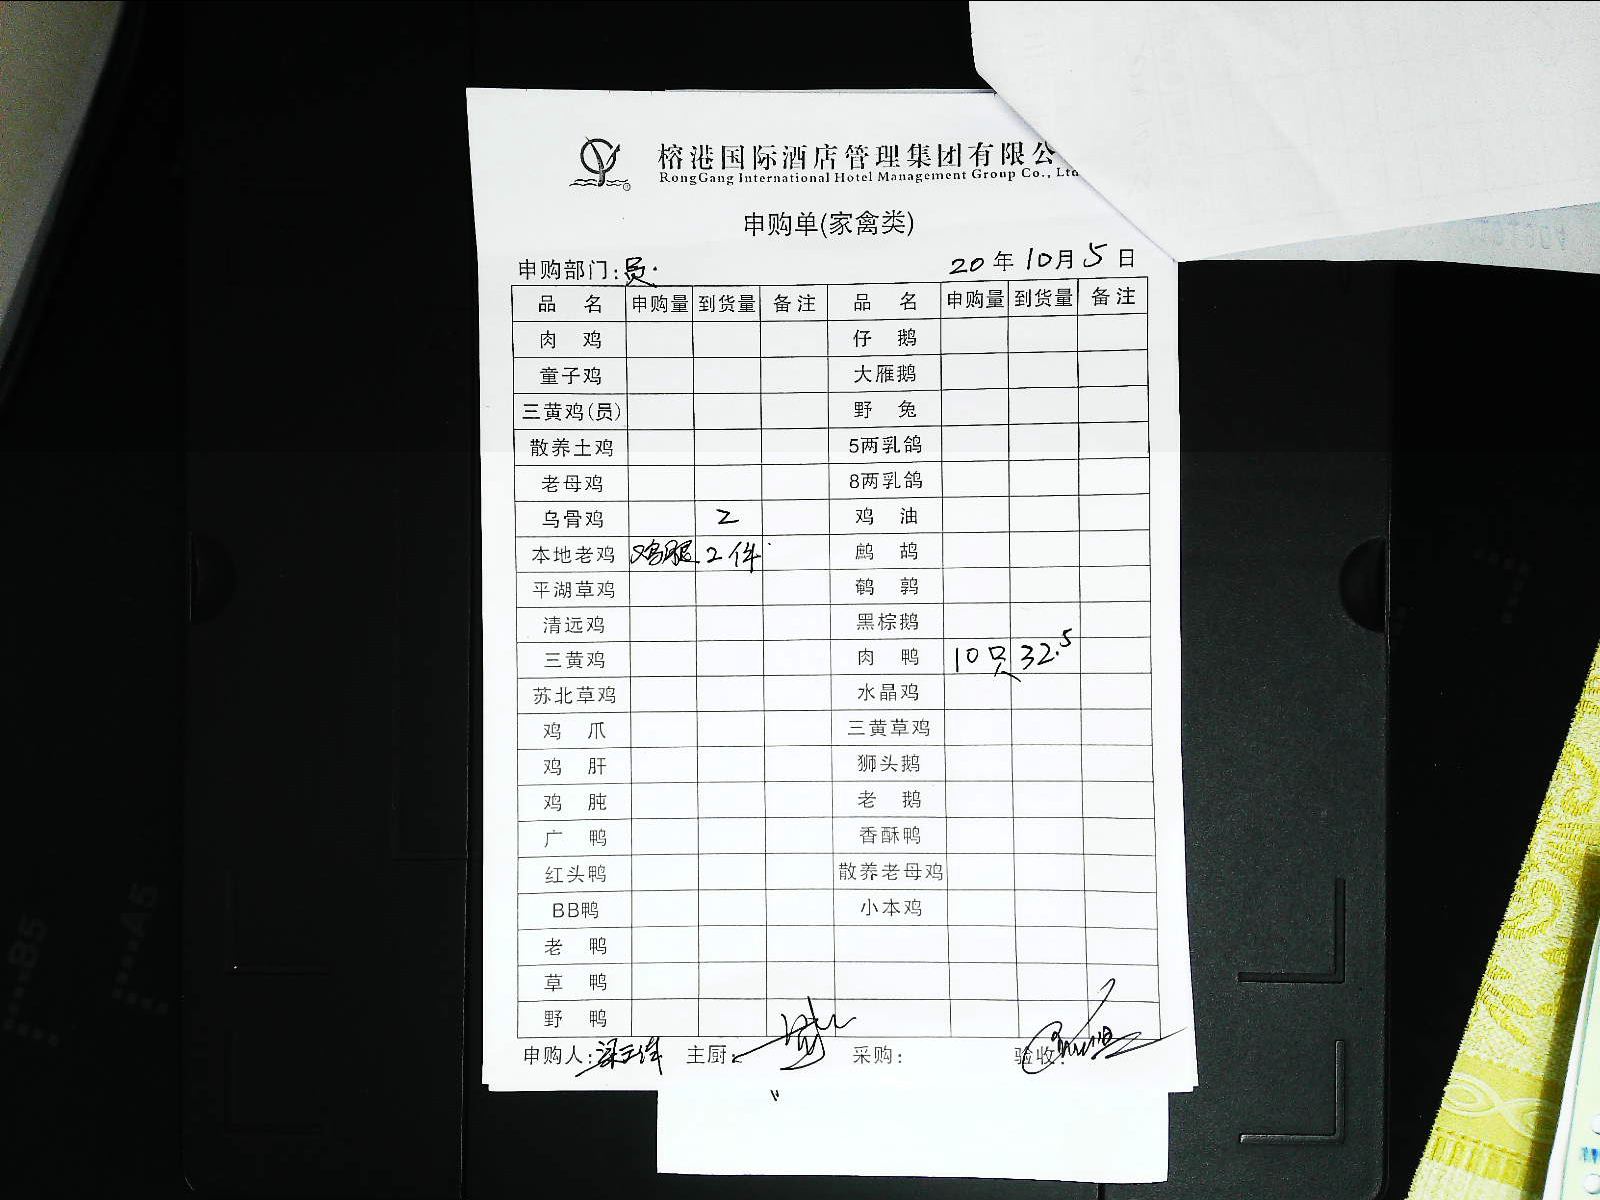 榕港国际酒店管理集团有限公
RongGang International Hotel Management Group Co., Ltd
申购单(家禽类)
申购部门:员. 20年10月5日
品名 申购量 到货量 备注 品名 申购量 到货量 备注
肉鸡 仔鹅
童子鸡 大雁鹅
三黄鸡(员) 野兔
散养土鸡 5两乳鸽
老母鸡 8两乳鸽
乌骨鸡 2 鸡油
本地老鸡 鸡腿 2件 鹧鸪
平湖草鸡 鹌鹑
清远鸡 黑棕鹅
三黄鸡 肉鸭 10只 32.5
苏北草鸡 水晶鸡
鸡爪 三黄草鸡
鸡肝 狮头鹅
鸡肫 老鹅
广鸭 香酥鸭
红头鸭 散养老母鸡
BB鸭 小本鸡
老鸭
草鸭
野鸭
申购人: 主厨: 采购: 验收:
B5
A5